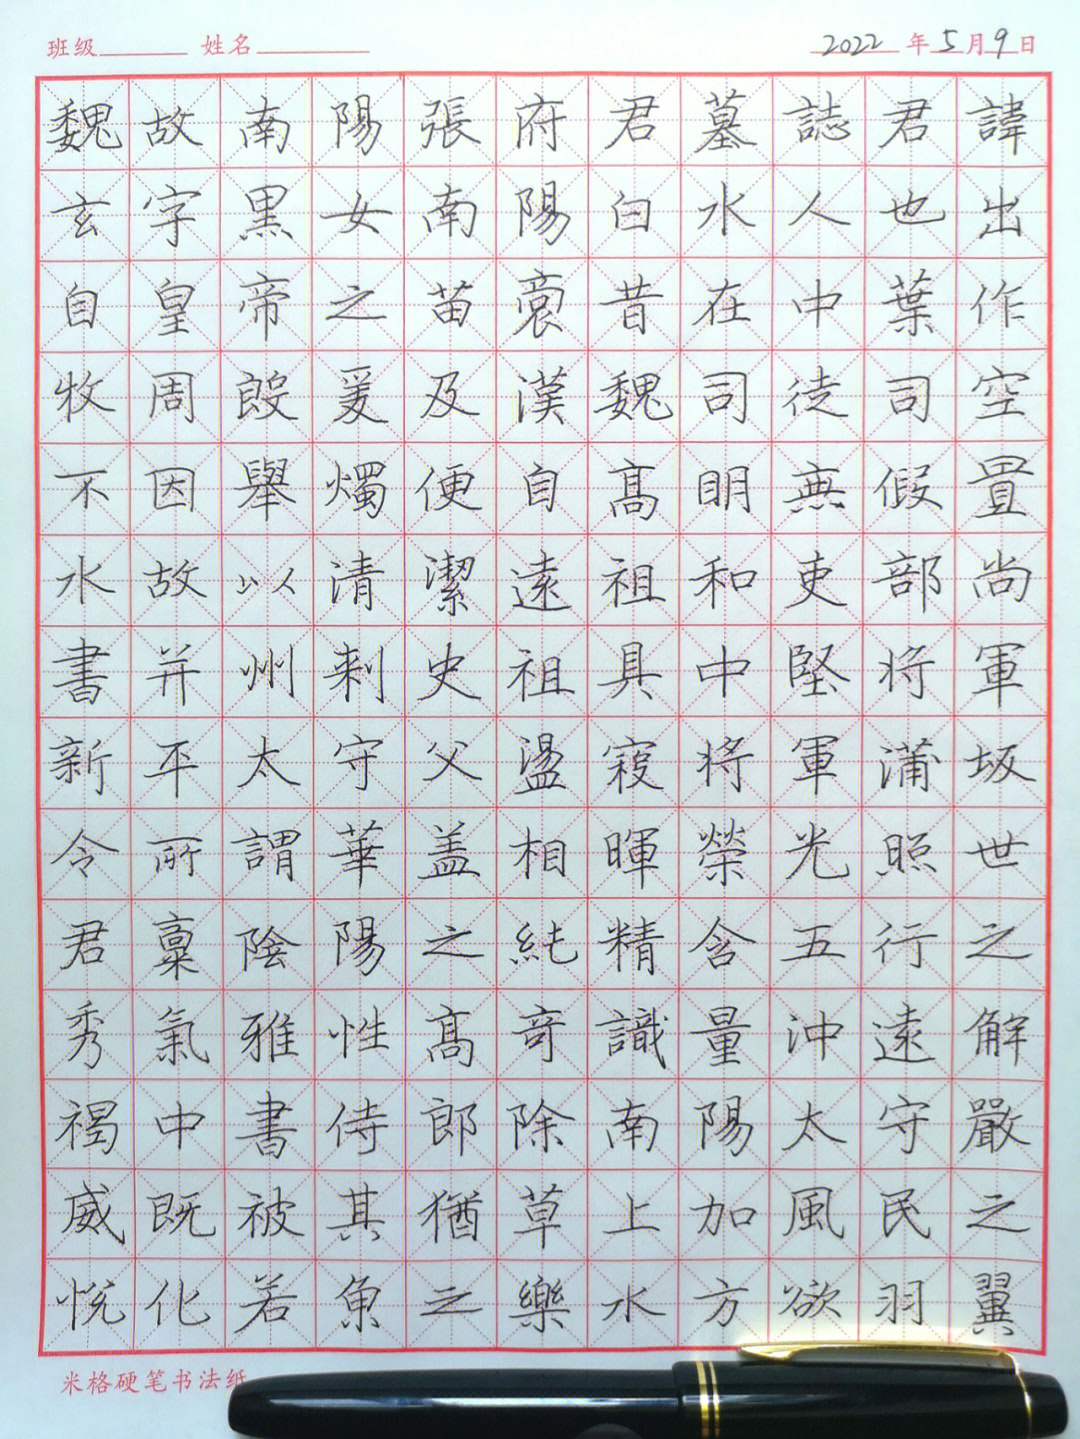 班级 姓名 2022年5月9日
魏故南陽張府君墓誌君諱
玄字黑女南陽白水人也出
自皇帝之苗裔昔在中葉作
牧周殷爰及漢魏司徒司空
不因舉燭便自髙明無假置
水故以清潔遠祖和吏部尚
書并州刺史祖具中堅将軍
新平太守父盪寇将軍蒲坂
令所謂華盖相暉榮光照世
君稟陰陽之純精含五行之
秀氣雅性髙奇識量沖遠解
褐中書侍郎除南陽太守嚴
威既被其猶草上加風民之
悦化若魚之樂水方欲羽翼
米格硬笔书法纸